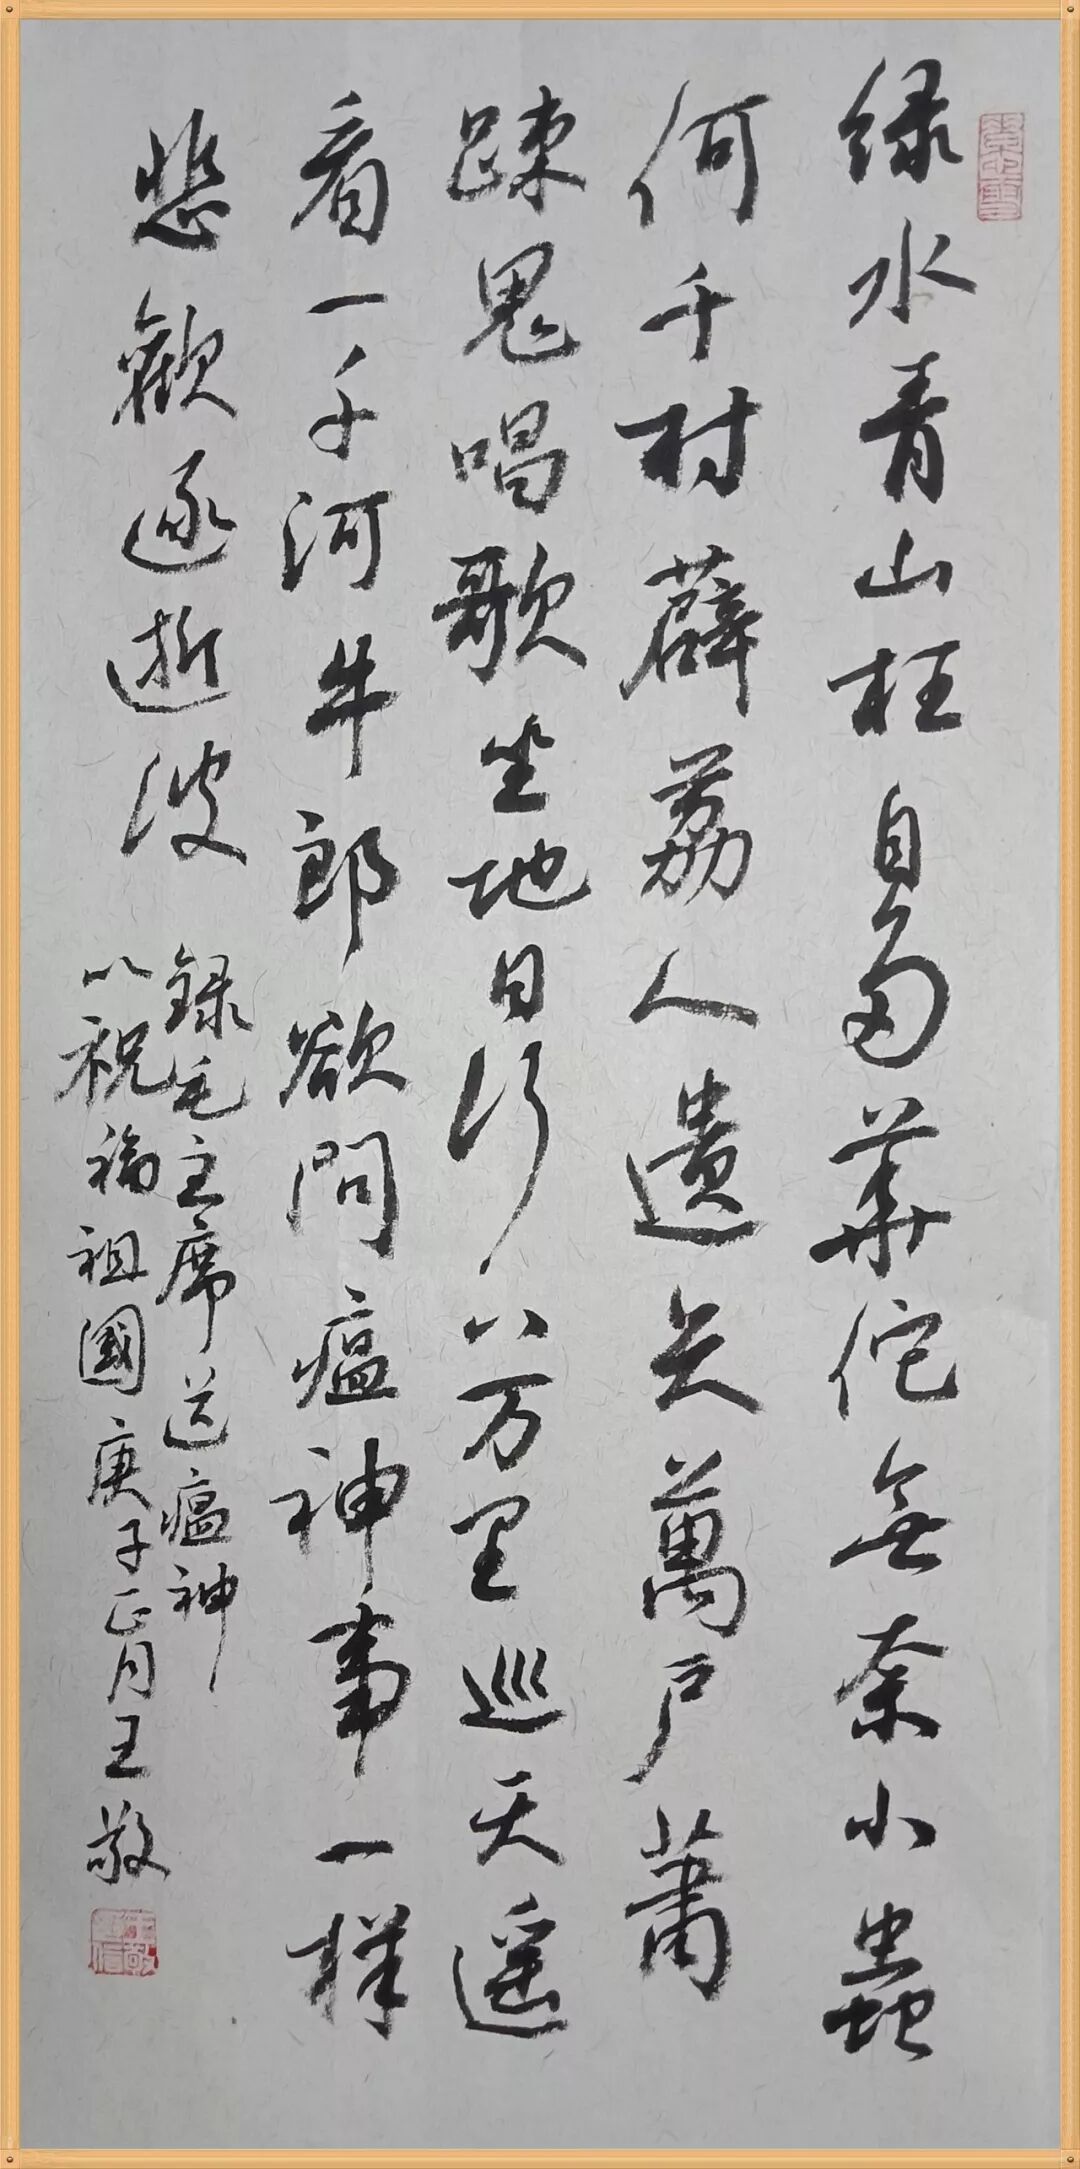 绿水青山枉自多華佗無奈小蟲
何千村薜荔人遺矢萬戶蕭
踈鬼唱歌坐地日行八万里巡天遥
看一千河牛郎欲問瘟神事一样
悲歡逐逝波
録毛主席送瘟神
以祝福祖國庚子正月王敬